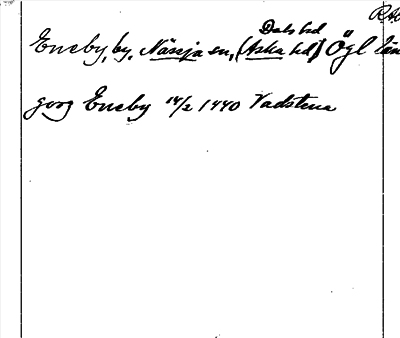 Dals hd
Eneby, by, Nässja sn, (Aska hd) Ögl län
jorj Eneby 14/2 1440 Vadstena